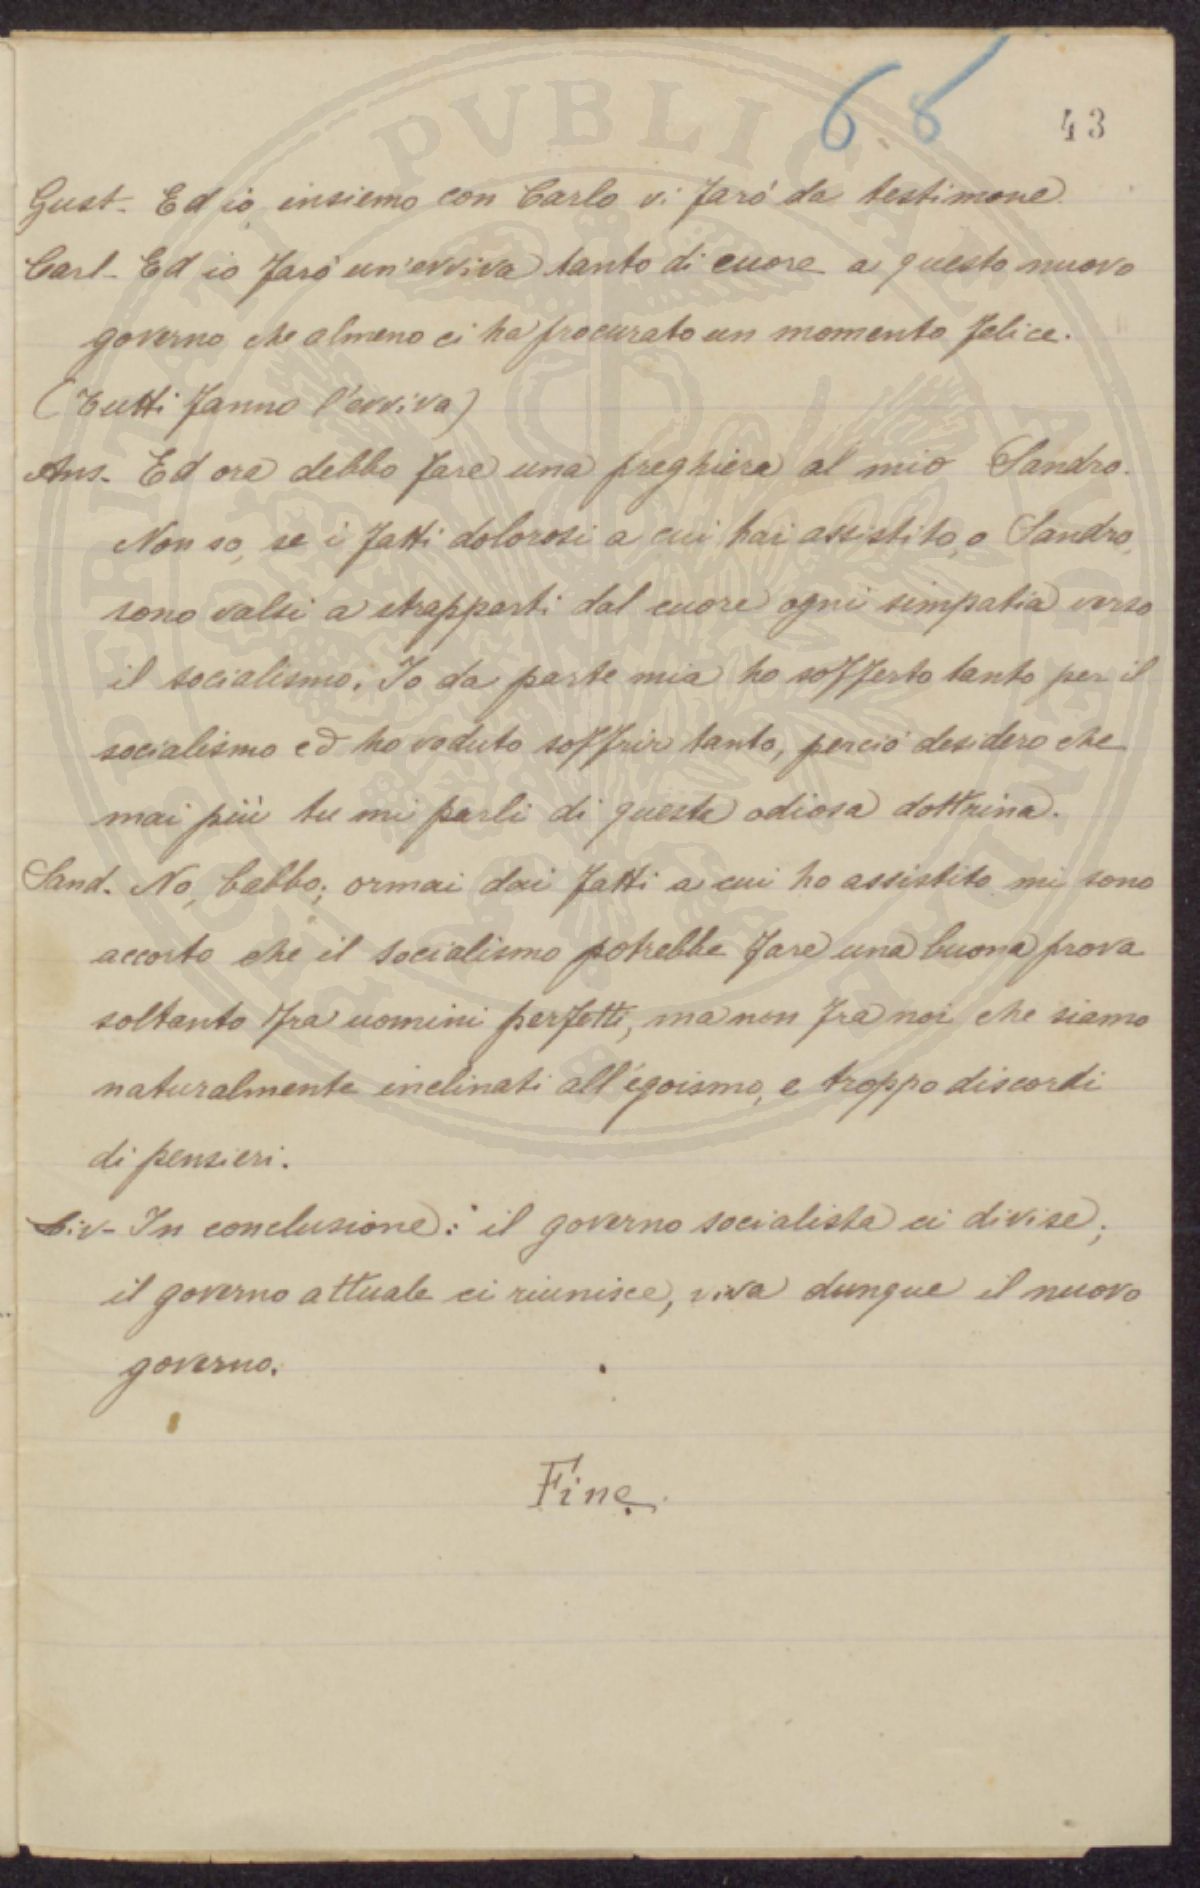 68
43
Gust- Ed io, insiemo con Carlo vi farò da testimone.
Carl- Ed io farò un'evviva tanto di cuore a questo nuovo
governo che almeno ci ha procurato un momento felice.
(Tutti fanno l'evviva)
Ans- Ed ora debbo fare una preghiera al mio Sandro.
Non so, se i fatti dolorosi a cui hai assistito, o Sandro,
sono valsi a strapparti dal cuore ogni simpatia verso
il socialismo. Io da parte mia ho sofferto tanto per il
socialismo ed ho veduto soffrir tanto, perciò desidero che
mai più tu mi parli di questa odiosa dottrina.
Sand. No, babbo; ormai dai fatti a cui ho assistito mi sono
accorto che il socialismo potrebbe fare una buona prova
soltanto fra uomini perfetti, ma non fra noi che siamo
naturalmente inclinati all'egoismo, e troppo discordi
di pensieri.
In conclusione: il governo socialista ci divise;
il governo attuale ci riunisce, viva dunque il nuovo
governo.
Fine.